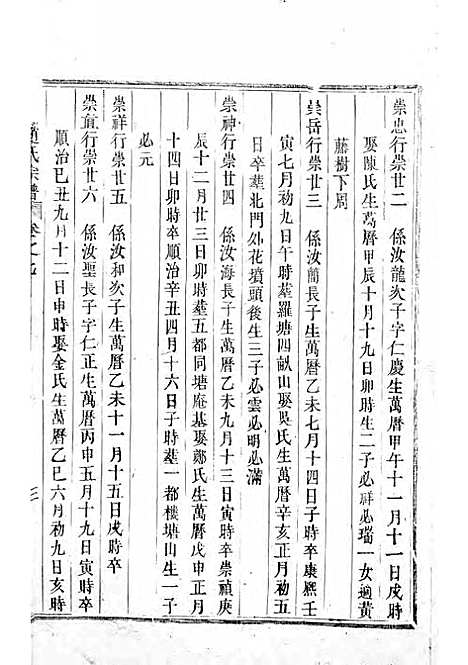 崇忠行崇廿二　係汝龍次子字仁慶生萬曆甲午十一月十一日戌時
娶陳氏生萬曆甲辰十月十九日卯時生二子必祥必瑞一女適黃
藤樹下周
崇岳行崇廿三　係汝蘭長子生萬曆乙未七月十四日子時卒康熙壬
寅七月初九日午時葬羅塘四畝山娶吳氏生萬曆辛亥正月初五
日卒葬北門外花墳頭後生三子必雲必明必滿
崇神行崇廿四　係汝海長子生萬曆乙未九月十三日寅時卒崇禎庚
辰十二月廿三日卯時葬五都同塘庵基娶鄭氏生萬曆戊申正月
十四日卯時卒順治辛丑四月十六日子時葬一都樓塘山生一子
必元
崇祥行崇廿五　係汝和次子生萬曆乙未十一月十五日戌時卒
行崇廿六　係汝聖長子字仁正生萬曆丙申五月十九日寅時卒
順治己丑九月十二日申時娶金氏生萬曆乙巳六月初九日亥時
氏宗譜　卷之